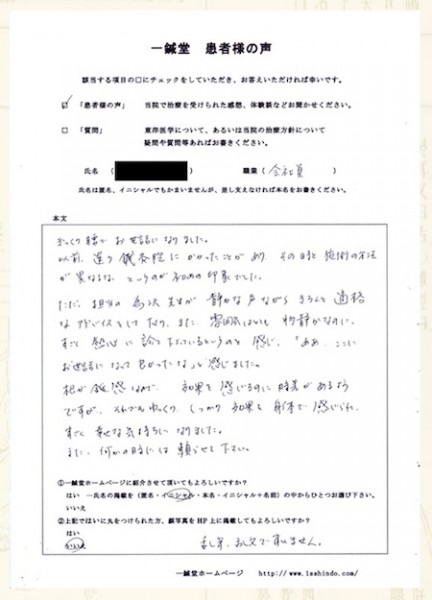 一鍼堂 患者様の声
該当する項目の□にチェックをしていただき、お答えいただければ幸いです。
☑ 「患者様の声」 当院で治療を受けられた感想、体験談などお聞かせください。
□ 「質問」 東洋医学について、あるいは当院の治療方針について
疑問や質問等あればお書きください。
氏名 職業 ( 会社員 )
氏名は匿名、イニシャルでもかまいませんが、差し支えなければ本名をお書きください。
本文
ぎっくり腰で お世話に なりました。
以前、違う 鍼灸院に かかったことが あり、その時と 施術の方法
が 異なるな、というのが 初めの 印象でした。
ただ、担当の 先生が 静かな 声ながら きちんと 適格
な アドバイスをして下さり、また、雰囲気はとても 物静かなのに、
すごく 熱心に 診て下さっているというのを 感じ、「ああ、ここに
お世話になって 良かったな」と 感じました。
根が 鈍感なので、 効果を 感じるのに 時差が あるよう
ですが、それでも ゆっくり、しっかり 効果を 身体で 感じられ、
すごく 幸せな 気持ちに なりました。
また、何かの 時には 頼らせて 下さい。
①一鍼堂ホームページに紹介させて頂いてもよろしいですか?
はい →氏名の掲載を (匿名・イニシャル・本名・イニシャル+名前) の中からひとつお選び下さい。
いいえ
②上記ではいに丸をつけられた方、顔写真をHP上に掲載してもよろしいですか?
はい
いいえ 乱字、乱文で すいません。
一鍼堂ホームページ http://www.1sshindo.com/